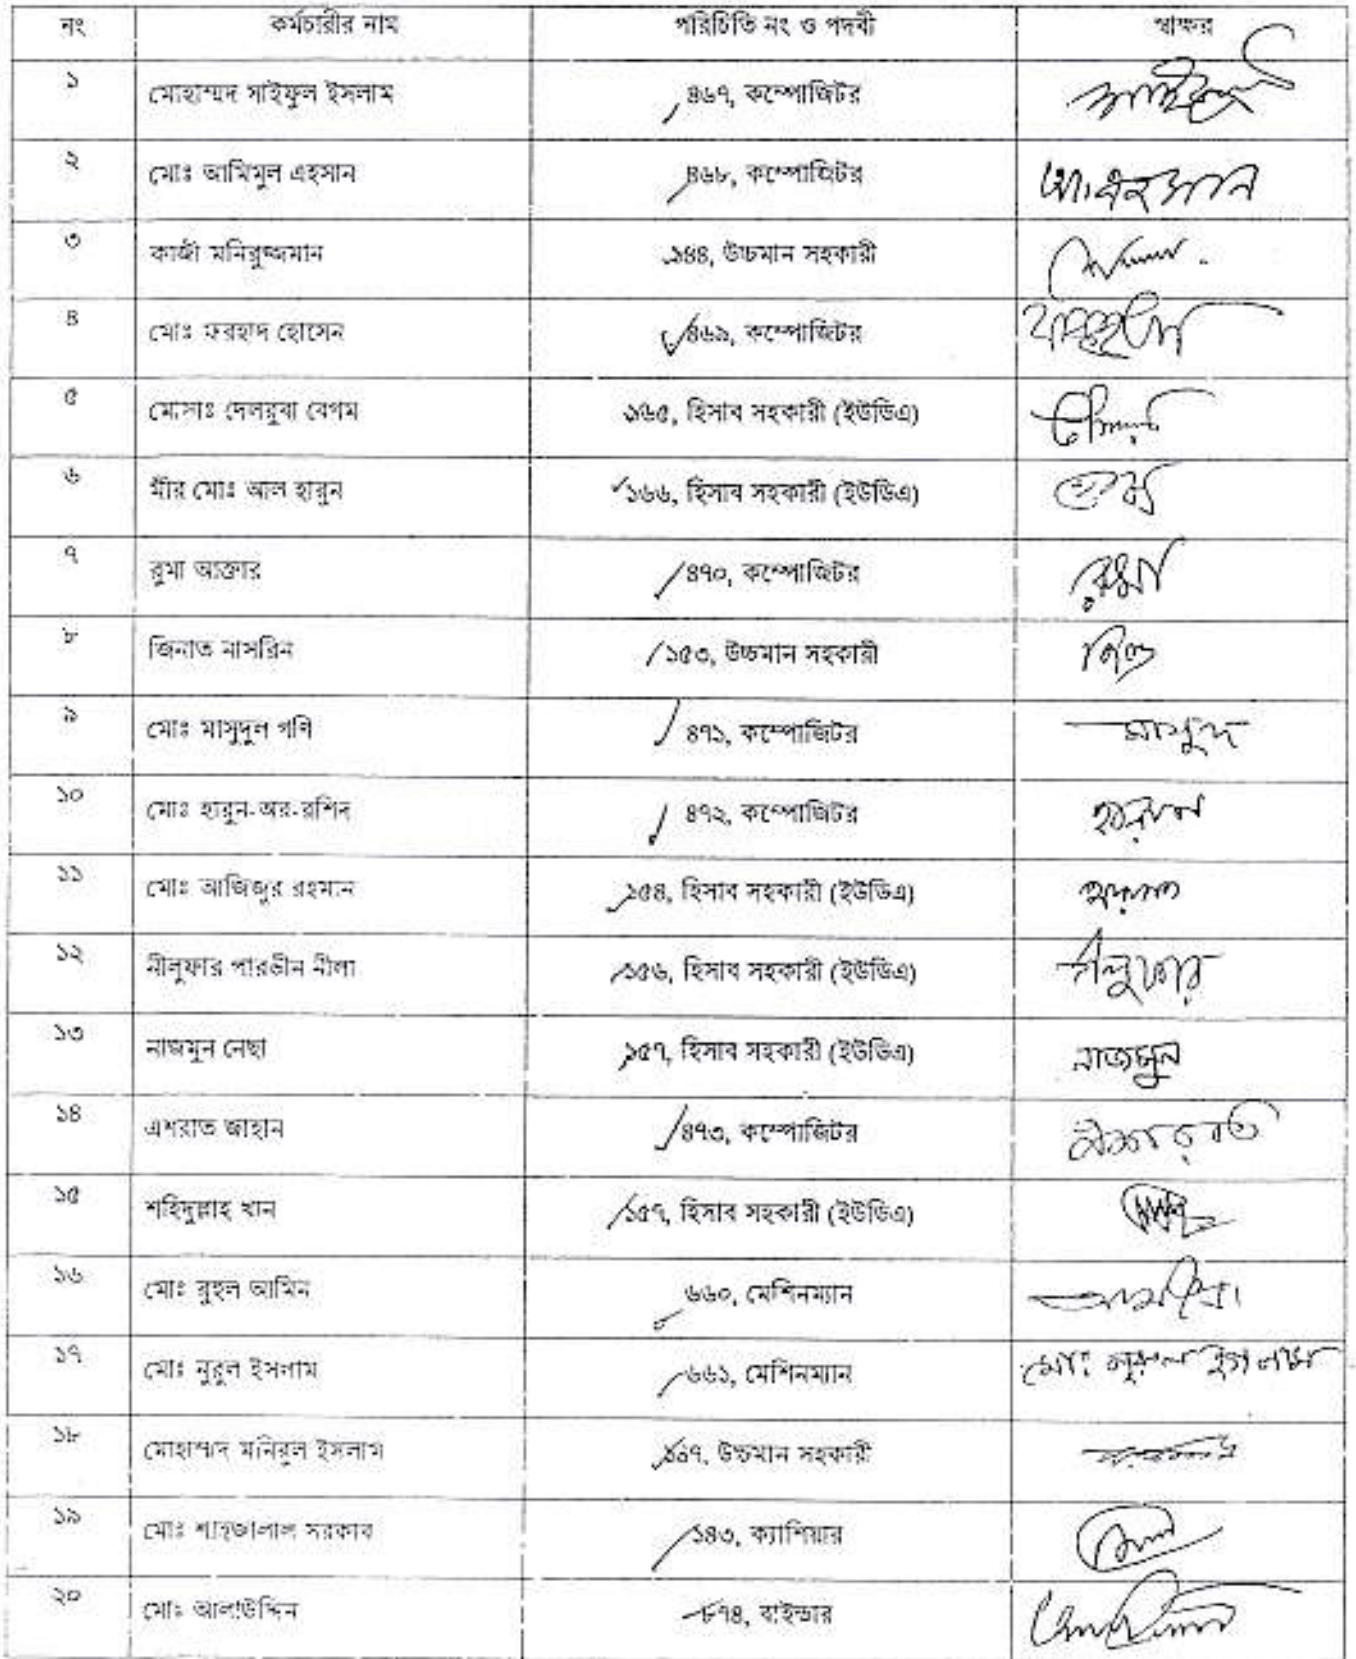 নং কর্মচারীর নাম পরিচিতি নং ও পদবী স্বাক্ষর
১ মোহাম্মদ সাইফুল ইসলাম ৪৬৭, কম্পোজিটর
২ মোঃ আমিমুল এহসান ৪৬৮, কম্পোজিটর আ. এহসান
৩ কাজী মনিরুজ্জমান ১৪৪, উচ্চমান সহকারী
৪ মোঃ ফরহাদ হোসেন ৪৬৯, কম্পোজিটর
৫ মোসাঃ দেলরুবা বেগম ১৬৫, হিসাব সহকারী (ইউডিএ)
৬ মীর মোঃ আল হারুন ১৬৬, হিসাব সহকারী (ইউডিএ)
৭ রুমা আক্তার ৪৭০, কম্পোজিটর রুমা
৮ জিনাত নাসরিন ১৫৩, উচ্চমান সহকারী
৯ মোঃ মাসুদুল গণি ৪৭১, কম্পোজিটর মাসুদ
১০ মোঃ হারুন-অর-রশিদ ৪৭২, কম্পোজিটর
১১ মোঃ আজিজুর রহমান ১৫৪, হিসাব সহকারী (ইউডিএ)
১২ নীলুফার পারভীন নীলা ১৫৬, হিসাব সহকারী (ইউডিএ) নীলুফার
১৩ নাজমুন নেছা ১৫৭, হিসাব সহকারী (ইউডিএ) নাজমুন
১৪ এশরাত জাহান ৪৭৩, কম্পোজিটর
১৫ শহিদুল্লাহ খান ১৫৭, হিসাব সহকারী (ইউডিএ)
১৬ মোঃ রুহুল আমিন ৬৬০, মেশিনম্যান
১৭ মোঃ নুরুল ইসলাম ৬৬১, মেশিনম্যান মোঃ নুরুল ইসলাম
১৮ মোহাম্মদ মনিরুল ইসলাম উচ্চমান সহকারী
১৯ মোঃ শাহজালাল সরকার ১৪৩, ক্যাশিয়ার
২০ মোঃ আলাউদ্দিন ৮৭৪, বাইন্ডার